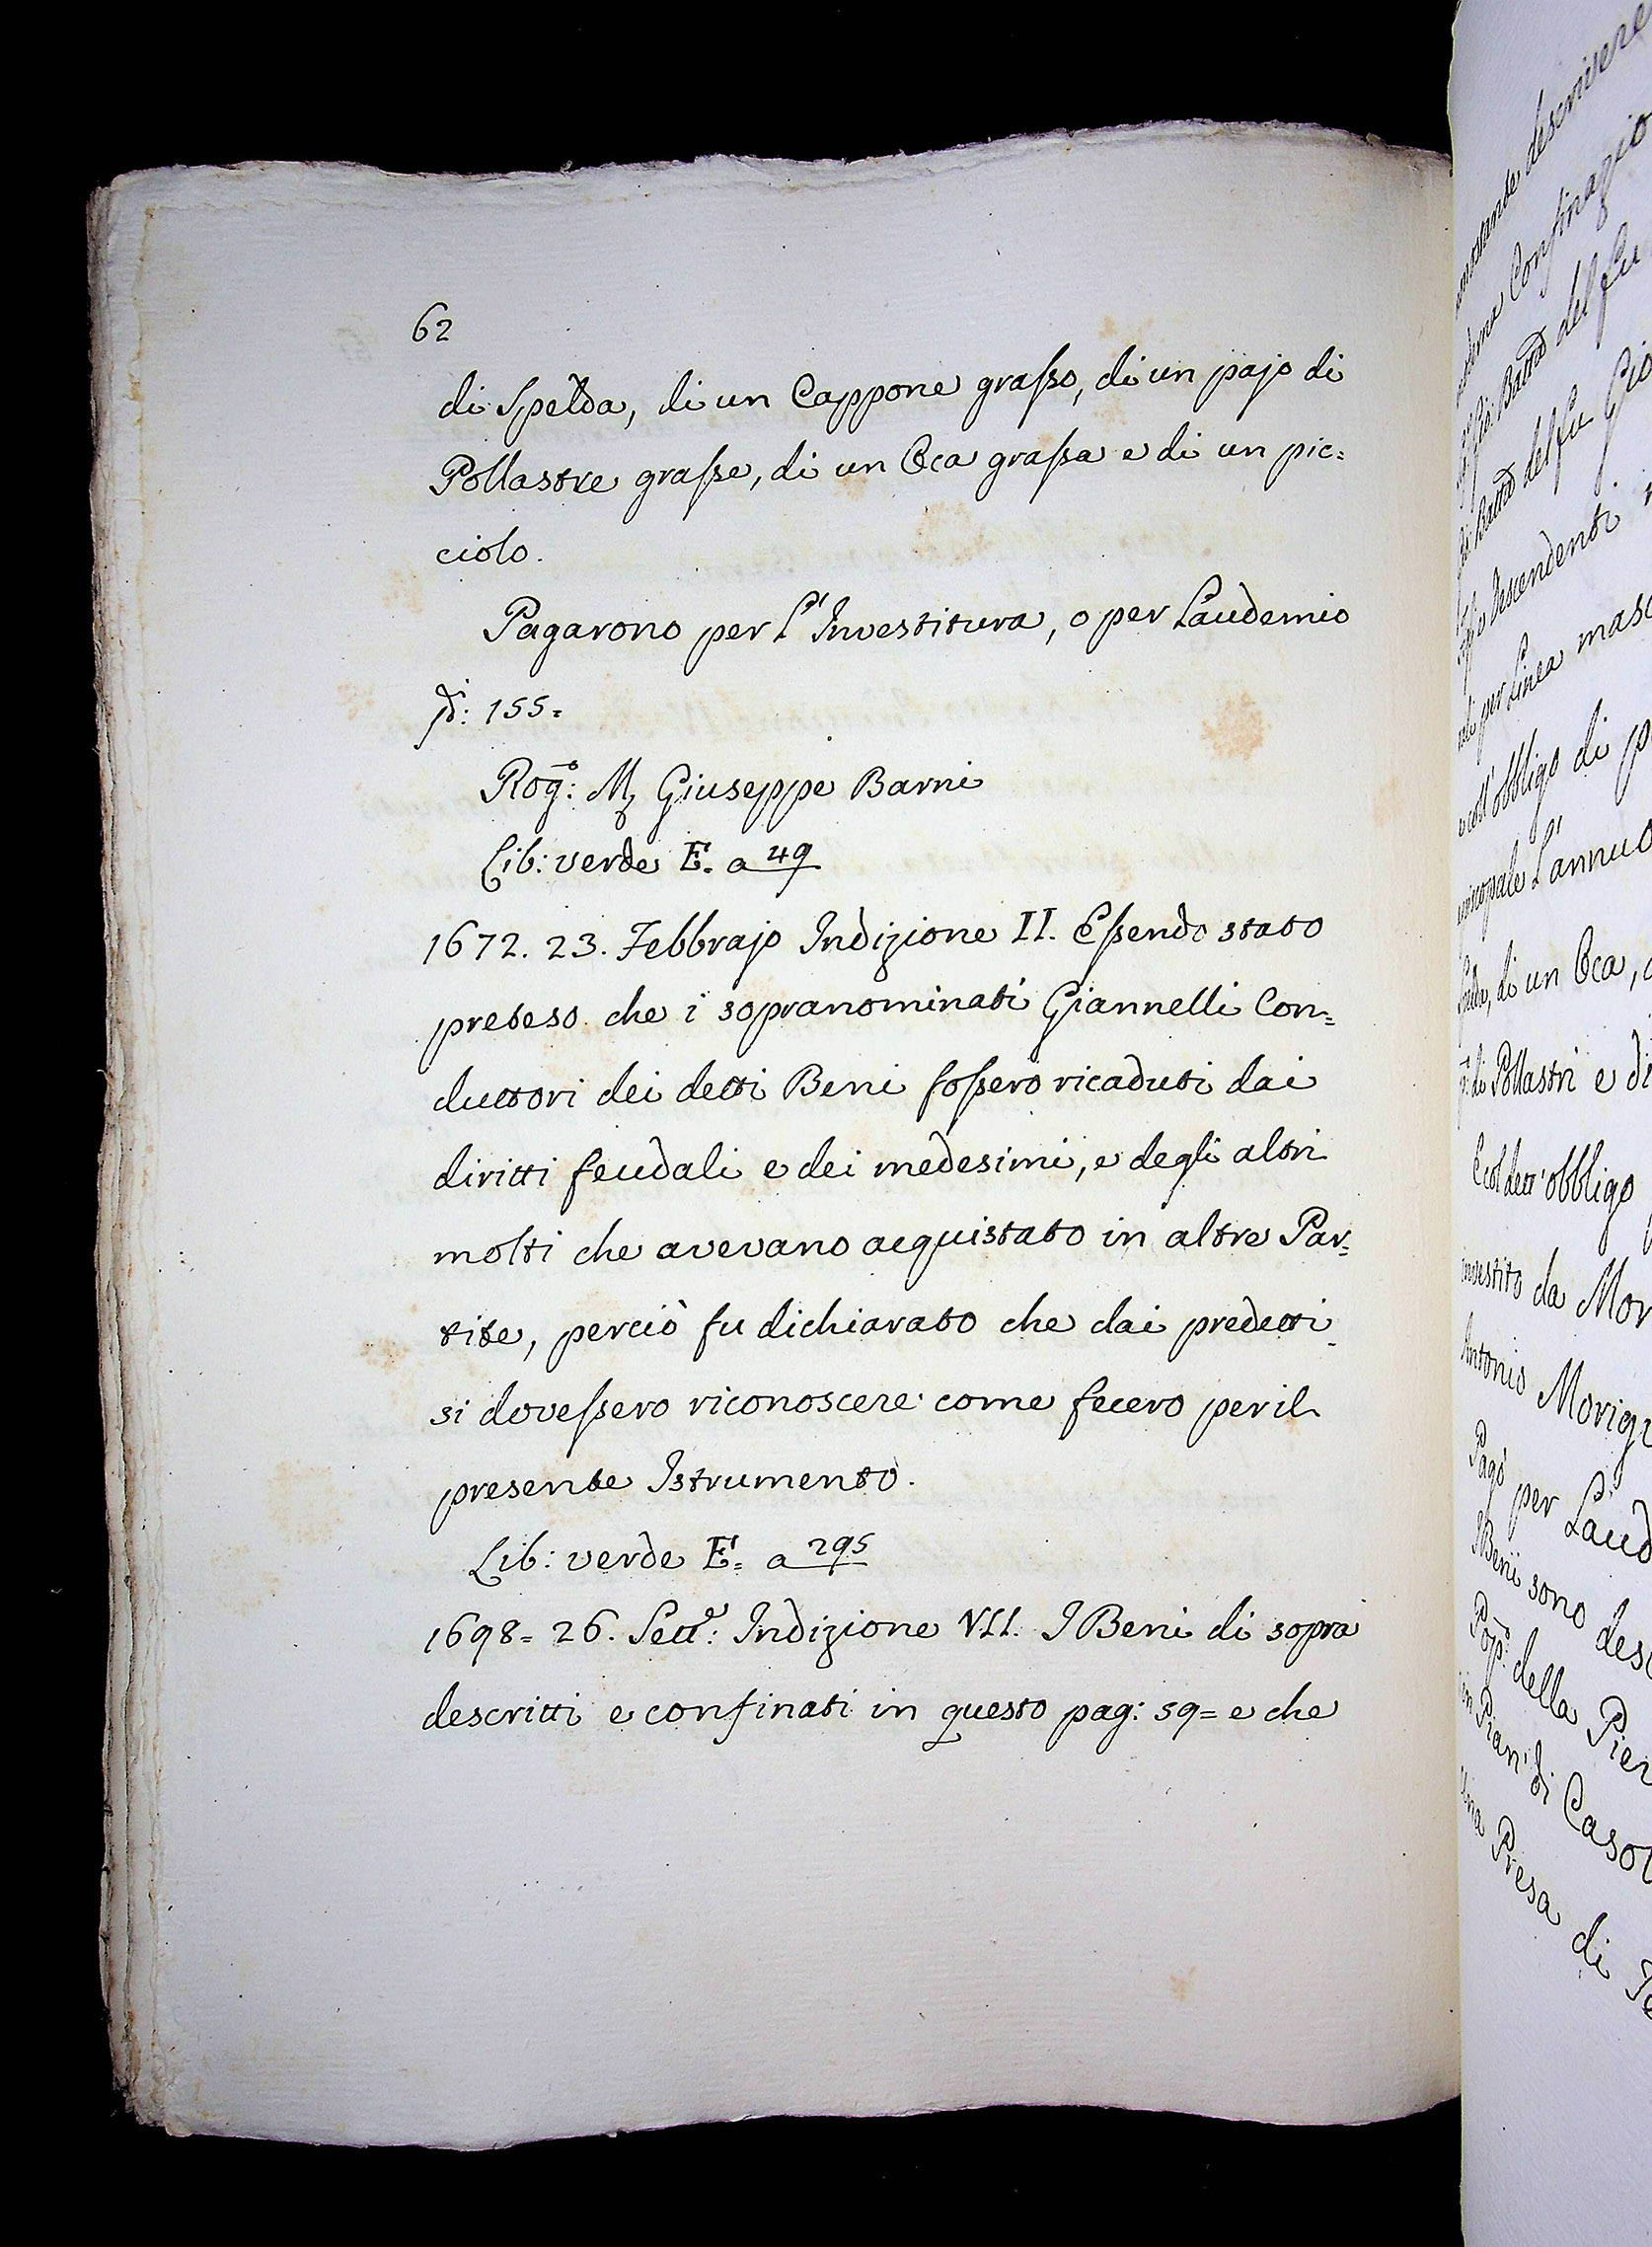 62
di Spelda, di un Cappone grasso, di un pajo di
Pollastre grasse, di un Oca grassa e di un pic=
ciolo.
Pagarono per L' Investitura, o per Laudemio
155=
Rog.o: M. Giuseppe Barni
Lib: verde E. a 49
1672. 23. Febbrajo Indizione II. Essendo stato
preteso che i sopranominati Giannelli Con=
duttori dei detti Beni fossero ricaduti dai
diritti feudali e dei medesimi, e degli altri
molti che avevano acquistato in altre Par=
tite, perciò fu dichiarato che dai predetti
si dovessero riconoscere come fecero per il
presente Istrumento.
Lib: verde E= a 295
1698= 26. Sett.e: Indizione VII. I Beni di sopra
descritti e confinati in questo pag: 59= e che
descrivere
Confinazio
Batta del fu
Batta del fu Gio
Descendenti
per Linea masc
coll'obbligo di p
L'annuo
di un Oca,
di Pollastri e di
E col dett'obbligo
investito da Mor
Antonio Morig
Pagò per Laud
I Beni sono desc
Pop.o: della Piev
in Pian' di Casol
una Presa di Te